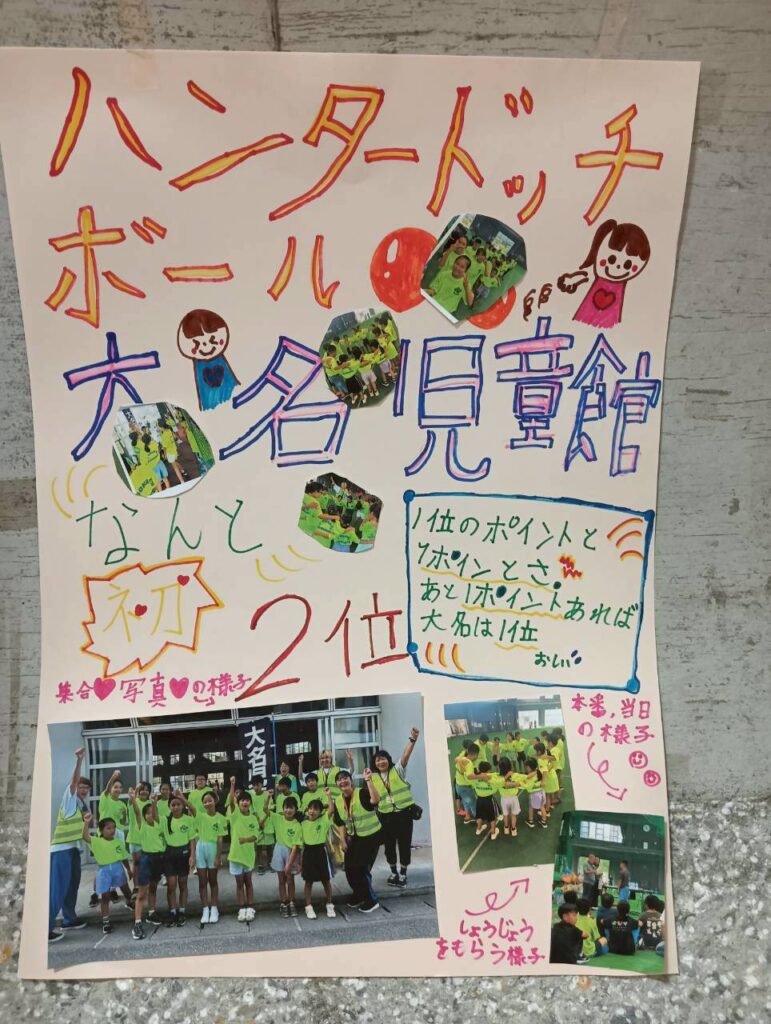 ハンタードッチ
ボール
大名児童館
なんと
初
2位
1位のポイントと
1ポイントとさ
あと1ポイントあれば
大名は1位
おしい
集合写真の様子
本番,当日
の様子
大名児
しょうじょう
をもらう様子